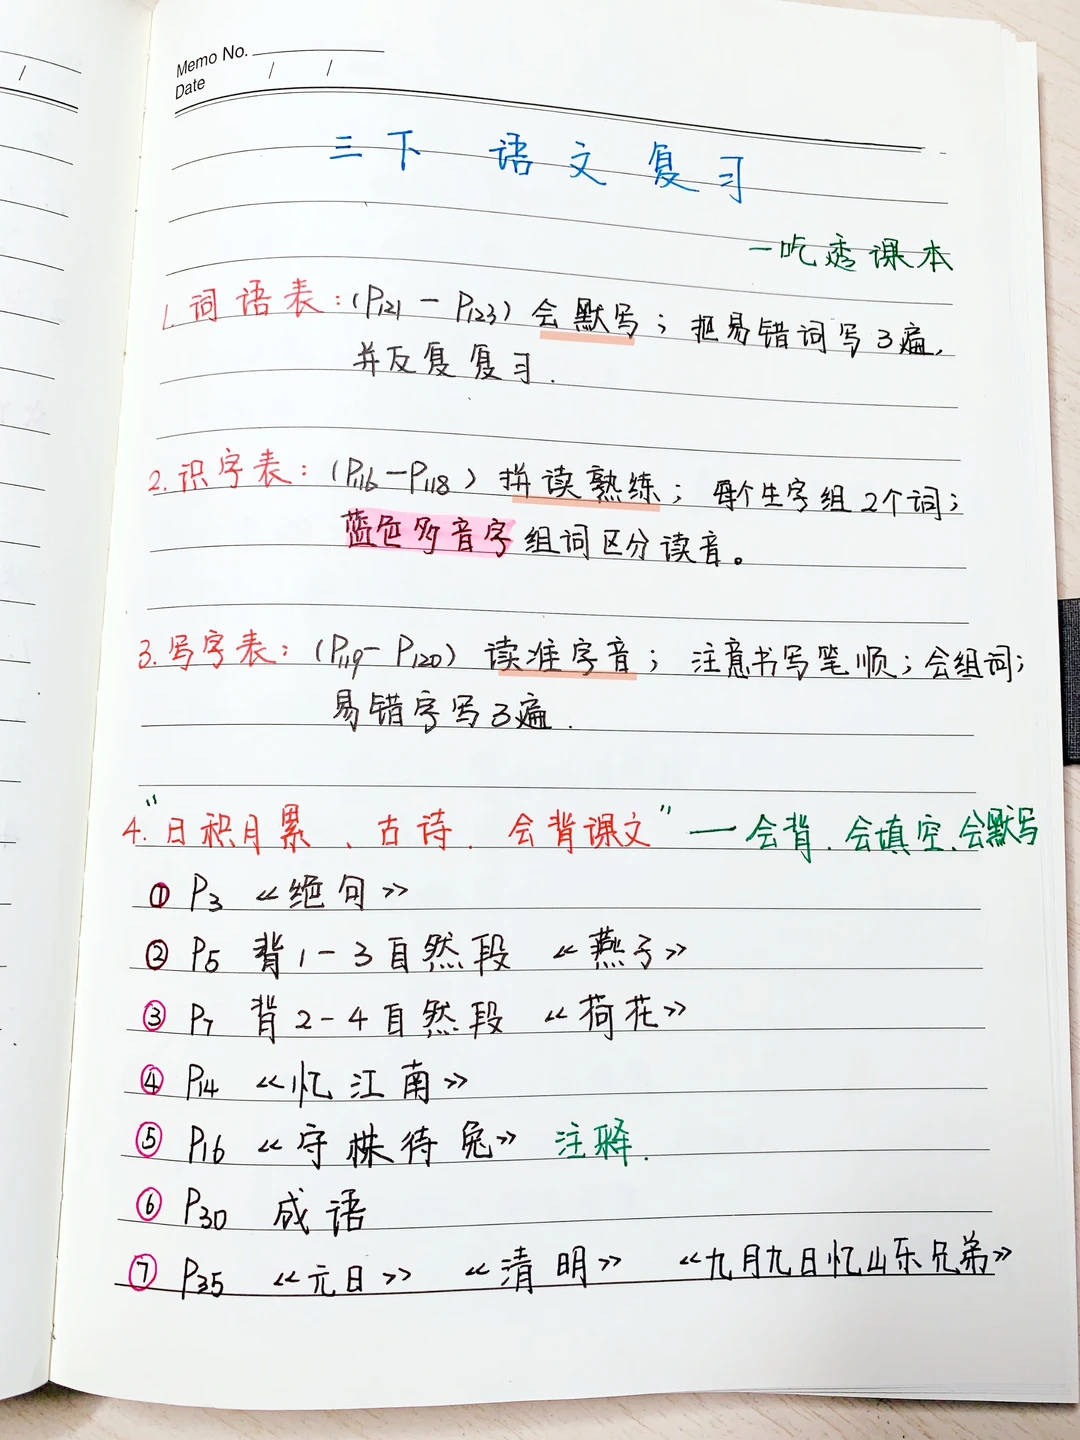 Memo No.
Date / /
/
三下 语文复习
一吃透课本
1. 词语表：(P121－P123) 会默写；把易错词写3遍，
并反复复习．
2. 识字表：(P116－P118) 拼读熟练；每个生字组2个词；
蓝色多音字 组词区分读音。
3. 写字表：(P119－P120) 读准字音；注意书写笔顺；会组词；
易错字写3遍．
4. “日积月累、古诗．会背课文” 一 会背．会填空、会默写
① P3 《绝句》
② P5 背1－3自然段 《燕子》
③ P7 背2－4自然段 《荷花》
④ P14 《忆江南》
⑤ P16 《守株待兔》 注释．
⑥ P30 成语
⑦ P35 《元日》 《清明》 《九月九日忆山东兄弟》